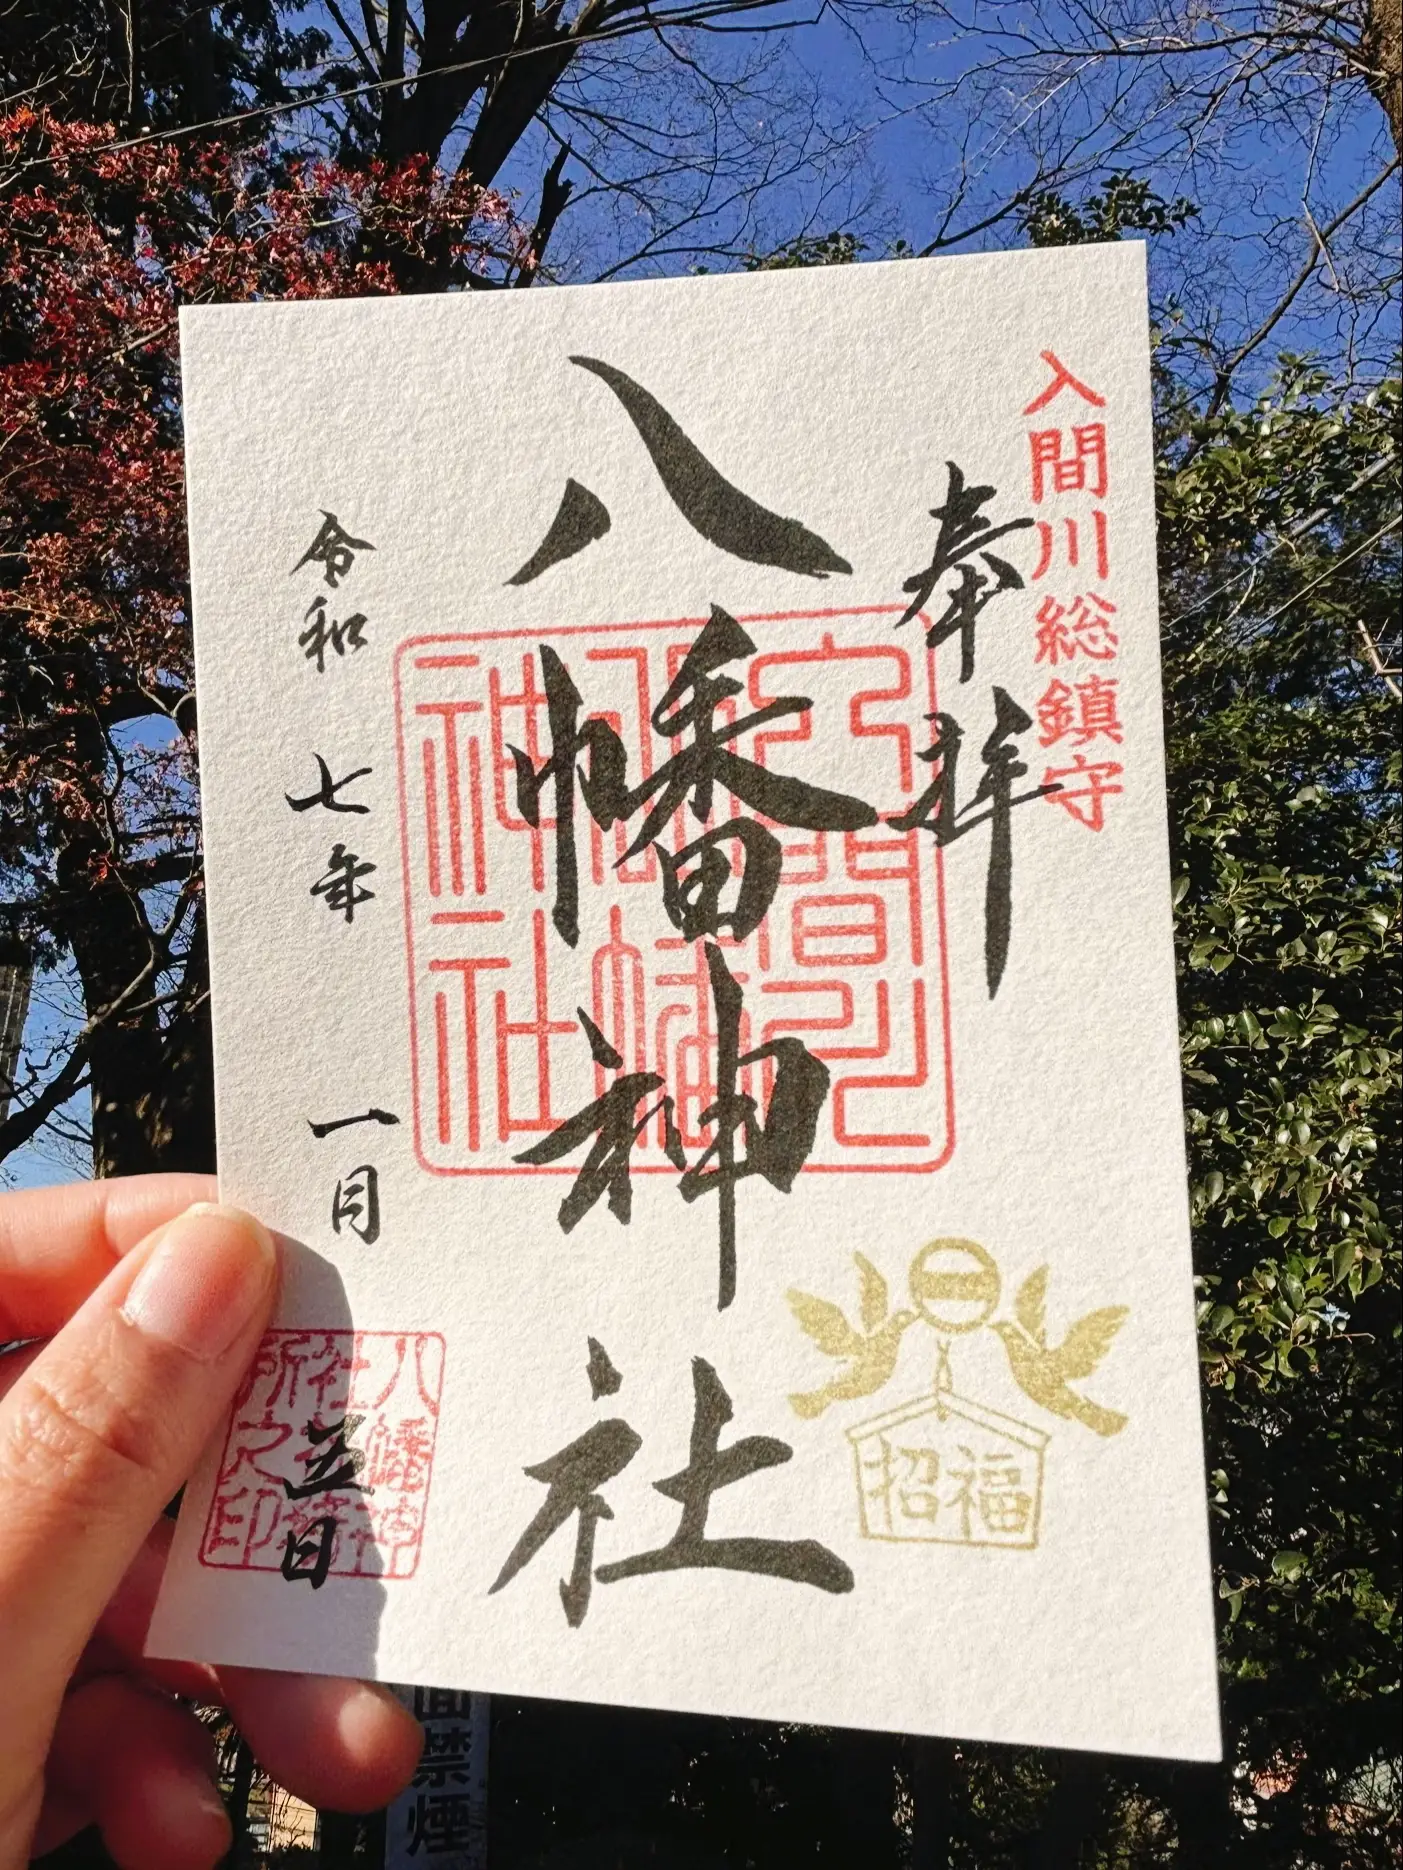 入間川総鎮守
奉拝
八幡神社
令和七年一月五日
入間川
八幡
神社
招福
八幡神
社社務
所之印
面禁煙